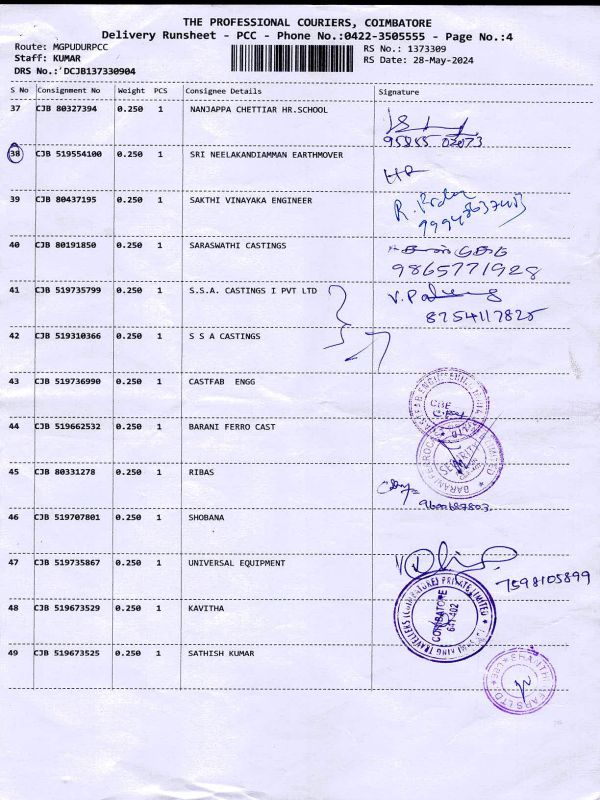 THE PROFESSIONAL COURIERS, COIMBATORE
Delivery Runsheet - PCC - Phone No.:0422-3505555 - Page No.:4
Route: MGPUDURPCC
RS No.: 1373309
Staff: KUMAR
RS Date: 28-May-2024
DRS No.: DCJB137330904
S No Consignment No Weight PCS Consignee Details Signature
37 CJB 80327394 0.250 1 NANJAPPA CHETTIAR HR.SCHOOL
38 CJB 519554100 0.250 1 SRI NEELAKANDIAMMAN EARTHMOVER
39 CJB 80437195 0.250 1 SAKTHI VINAYAKA ENGINEER
40 CJB 80191850 0.250 1 SARASWATHI CASTINGS
9865771928
41 CJB 519735799 0.250 1 S.S.A. CASTINGS I PVT LTD
8754117825
42 CJB 519310366 0.250 1 S S A CASTINGS
43 CJB 519736990 0.250 1 CASTFAB ENGG
CBE
44 CJB 519662532 0.250 1 BARANI FERRO CAST
BARANI FERROC LIMITED
SECURITY
45 CJB 80331278 0.250 1 RIBAS
9600687803
46 CJB 519707801 0.250 1 SHOBANA
47 CJB 519735867 0.250 1 UNIVERSAL EQUIPMENT
7598105899
48 CJB 519673529 0.250 1 KAVITHA
TRAVELLERS (COIMBATORE) PRIVATE LIMITED
COIMBATORE
641 402
49 CJB 519673525 0.250 1 SATHISH KUMAR
SHANTHI GEARS LTD CBE